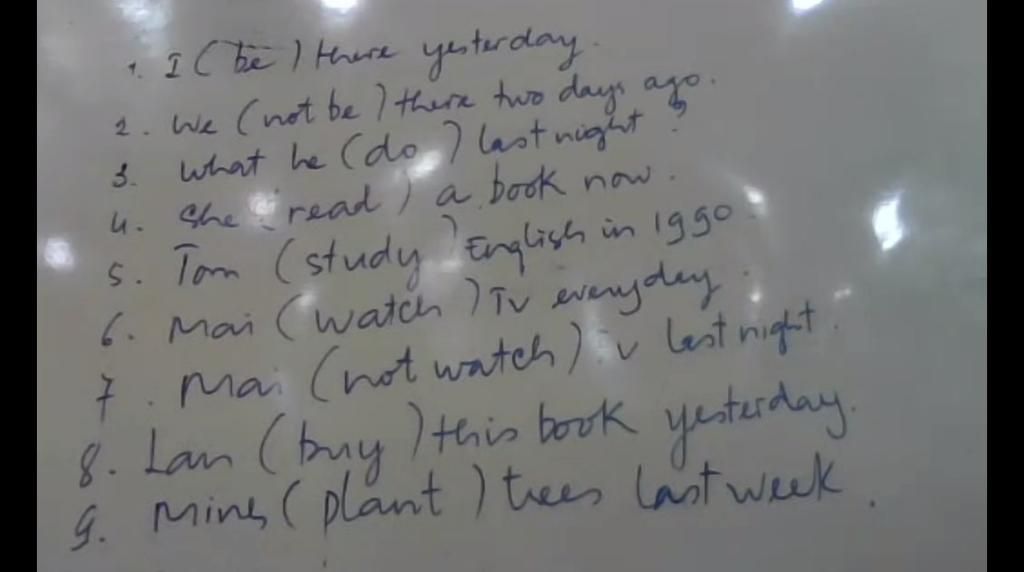 1. I (be) there yesterday.
2. We (not be) there two days ago.
3. What he (do) last night?
4. She (read) a book now.
5. Tom (study) English in 1990.
6. Mai (watch) TV everyday.
7. Mai (not watch) TV last night.
8. Lan (buy) this book yesterday.
9. (plant) trees last week.